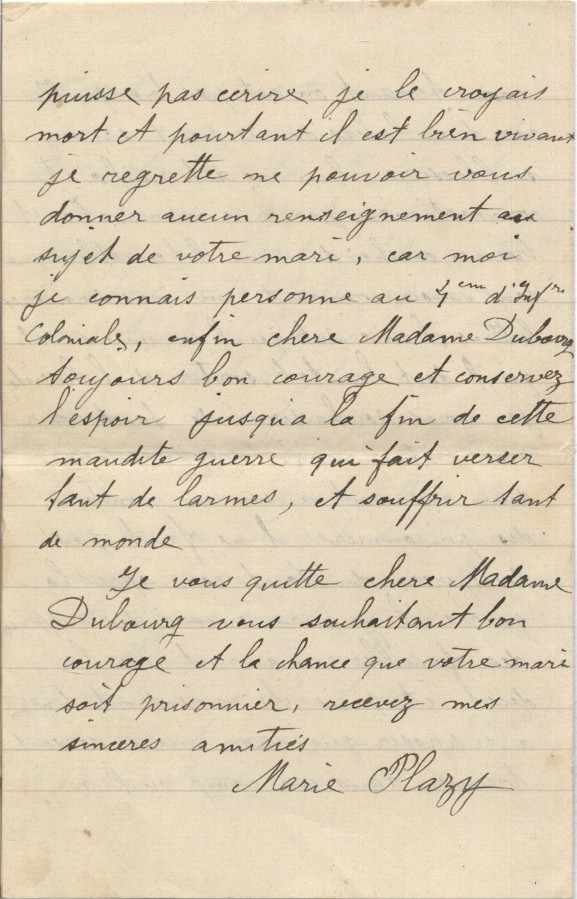 puisse pas ecrire je le croyais
mort et pourtant il est bien vivant
je regrette ne pouvoir vous
donner aucun renseignement au
sujet de votre mari, car moi
je connais personne au d'Inf^rie
Coloniale, enfin chere Madame Dubourg
toujours bon courage et conservez
l'espoir jusqu'a la fin de cette
maudite guerre qui fait verser
tant de larmes, et souffrir tant
de monde
Je vous quitte chere Madame
Dubourg vous souhaitant bon
courage et la chance que votre mari
soit prisonnier, recevez mes
sinceres amities
Marie Plazy